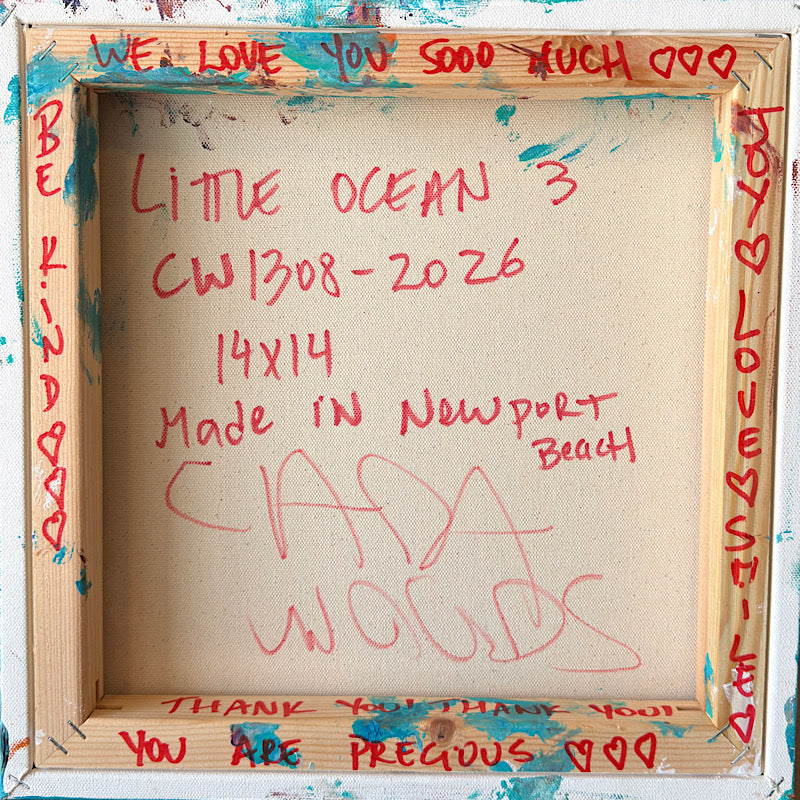 WE LOVE YOU SOOO MUCH ♡♡♡
BE KIND ♡♡♡
LiTTLE OCEAN 3
CW1308-2026
14X14
Made iN NewpORT
BeacH
CADA
WOODS
YOU ♡ LOVE ♡ SMILE ♡
THANK YOU! THANK YOU!
YOU ARE PRECiOUS ♡♡♡